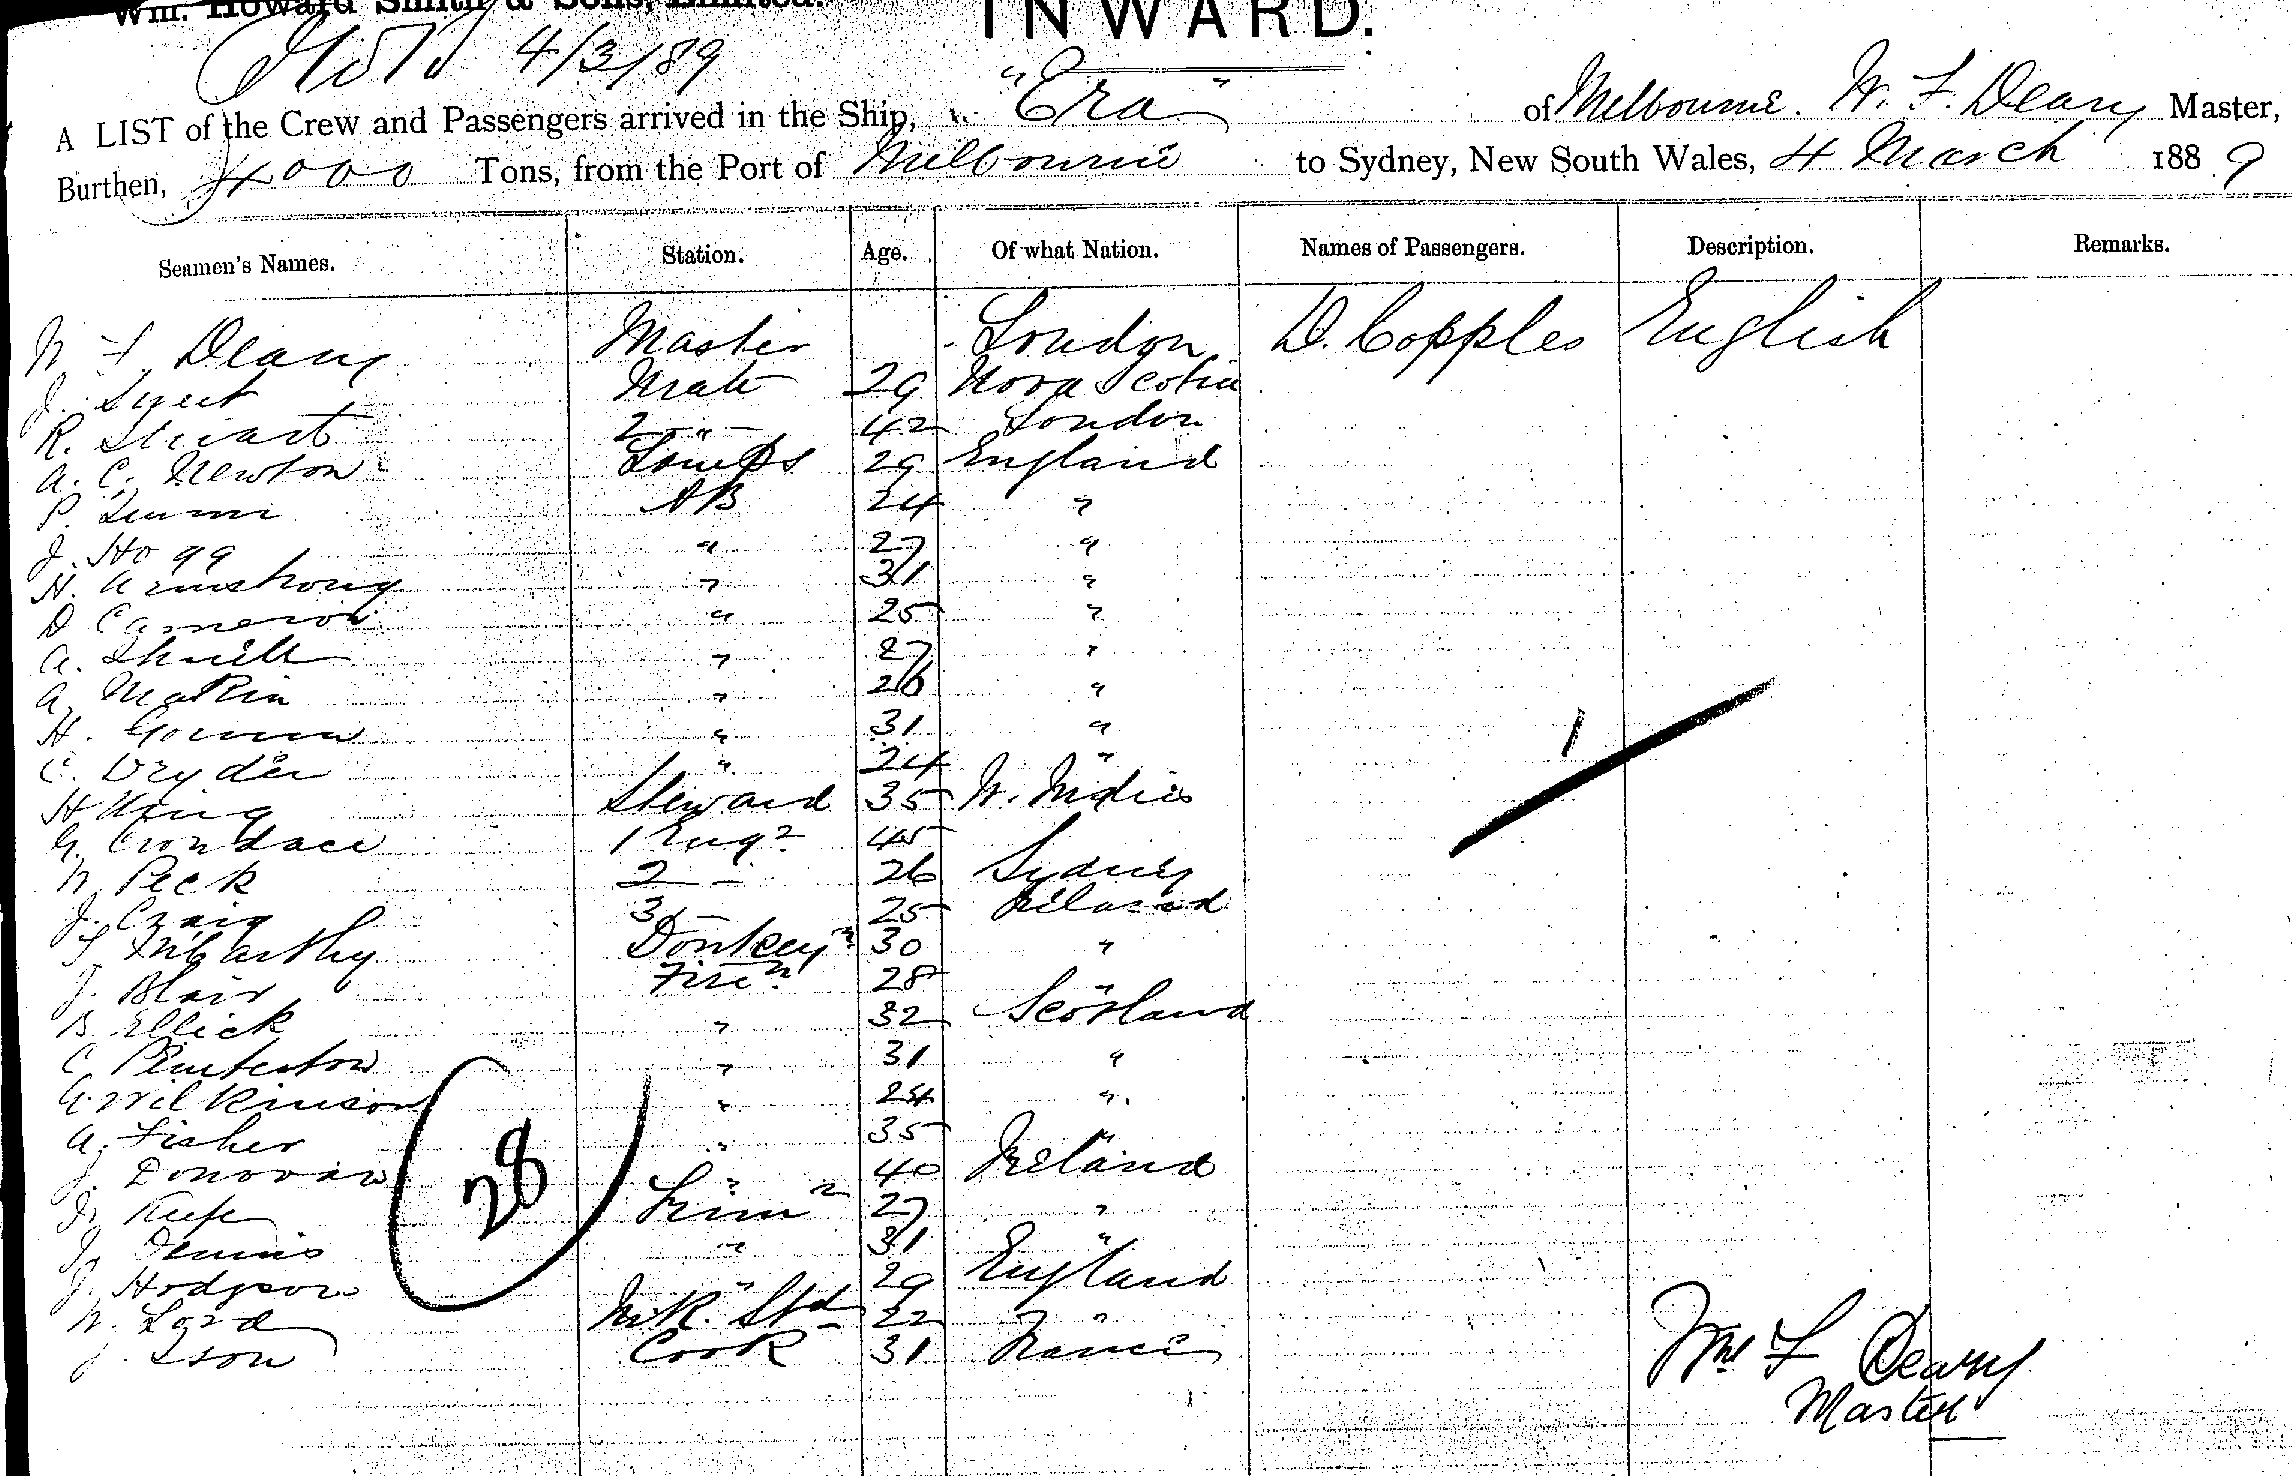 Wm. Howard Smith & Sons, Limited.
INWARD.
4/3/89
A LIST of the Crew and Passengers arrived in the Ship, "Era" of Melbourne. W. F. Deary Master,
Burthen, 4000 Tons, from the Port of Melbourne to Sydney, New South Wales, 4 March 1889
Seamen's Names. Station. Age. Of what Nation. Names of Passengers. Description. Remarks.
W F. Deary Master London D. Copples English
J. Mate 29 Nova Scotia
R. Stewart 2 " 42 London
A. C. Newton 29 England
P. AB 24 "
J. Hogg " 27 "
H. Armstrong " 31 "
D Cameron " 25 "
A. " 27 "
A. Makin " 26 "
H. " 31 "
C. Dryder " 24 "
H King Steward 35 W. Indies
G. Crondace 1 Engr 45
W. Peck 2 - 26 Sydney
J. Craig 3 - 25 Ireland
McCarthy Donkeyn 30 "
J. Blair Firen 28 "
B. Ellick " 32 Scotland
C " 31 "
G Wilkinson " 24 "
A. Fisher " 35 "
J. Donovan " 40 Ireland
J. Keefe Trimr 27 "
J. Dennis " 31 "
J. Hodgson " 29 England
W. Lord M.R. Std 22 "
J. Ison Cook 31 France
28
1
Wm F Deary
Master